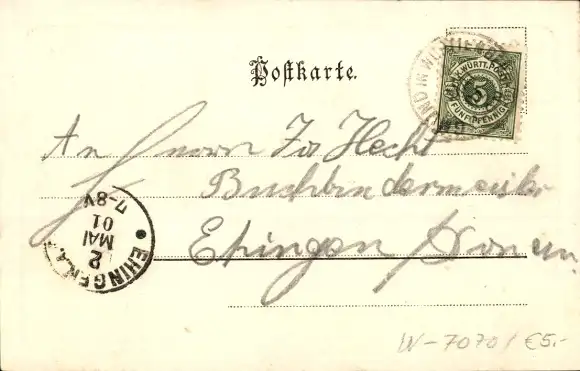 Postkarte.
K. WÜRTT. POST
5
FÜNF PFENNIG
GMÜND IN WÜRTT
An Herrn Jos Hecht
Buchbindermeister
Ehingen Donau
EHINGEN A.
2
MAI
01
7-8V
W-7070/ €5,-